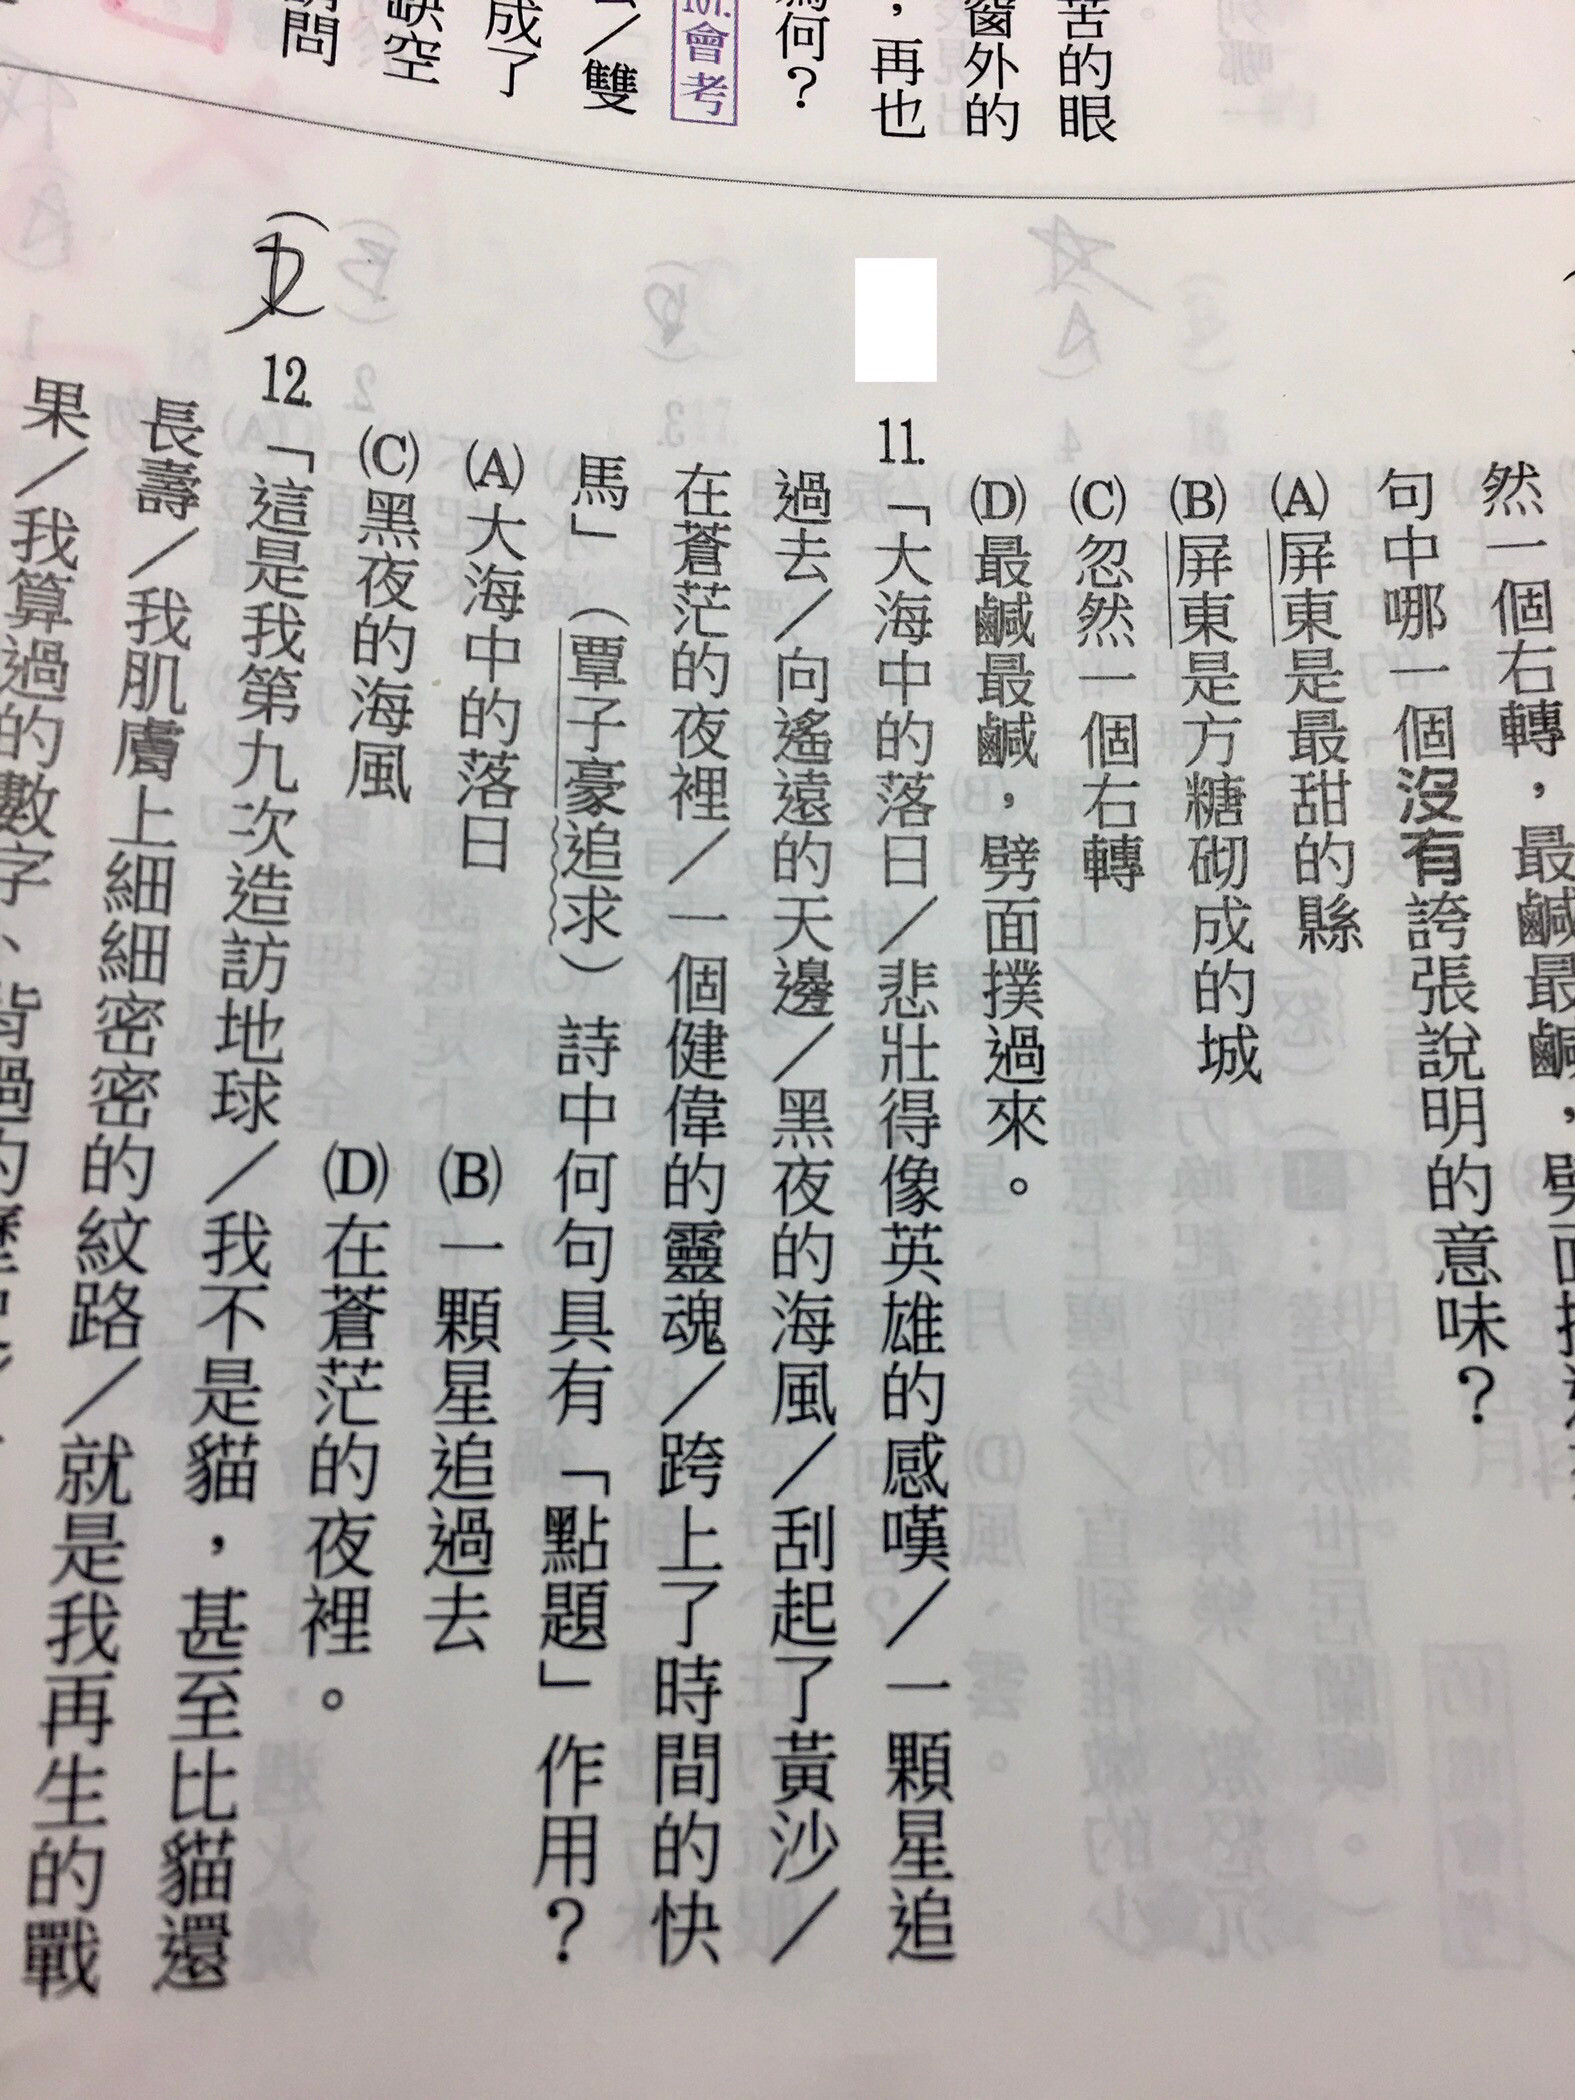 苦的眼
窗外的
，再也
為何？
會考
／雙
成了
缺空
問
然一個右轉，最鹹最鹹，劈面撲過
句中哪一個沒有誇張說明的意味？
(A)屏東是最甜的縣
(B)屏東是方糖砌成的城
(C)忽然一個右轉
(D)最鹹最鹹，劈面撲過來。
11.「大海中的落日／悲壯得像英雄的感嘆／一顆星追
過去／向遙遠的天邊／黑夜的海風／刮起了黃沙／
在蒼茫的夜裡／一個健偉的靈魂／跨上了時間的快
馬」（覃子豪追求）詩中何句具有「點題」作用？
(A)大海中的落日 (B)一顆星追過去
(C)黑夜的海風 (D)在蒼茫的夜裡。
(D) 12.「這是我第九次造訪地球／我不是貓，甚至比貓還
長壽／我肌膚上細細密密的紋路／就是我再生的戰
果／我算過的數字、背過的歷史／